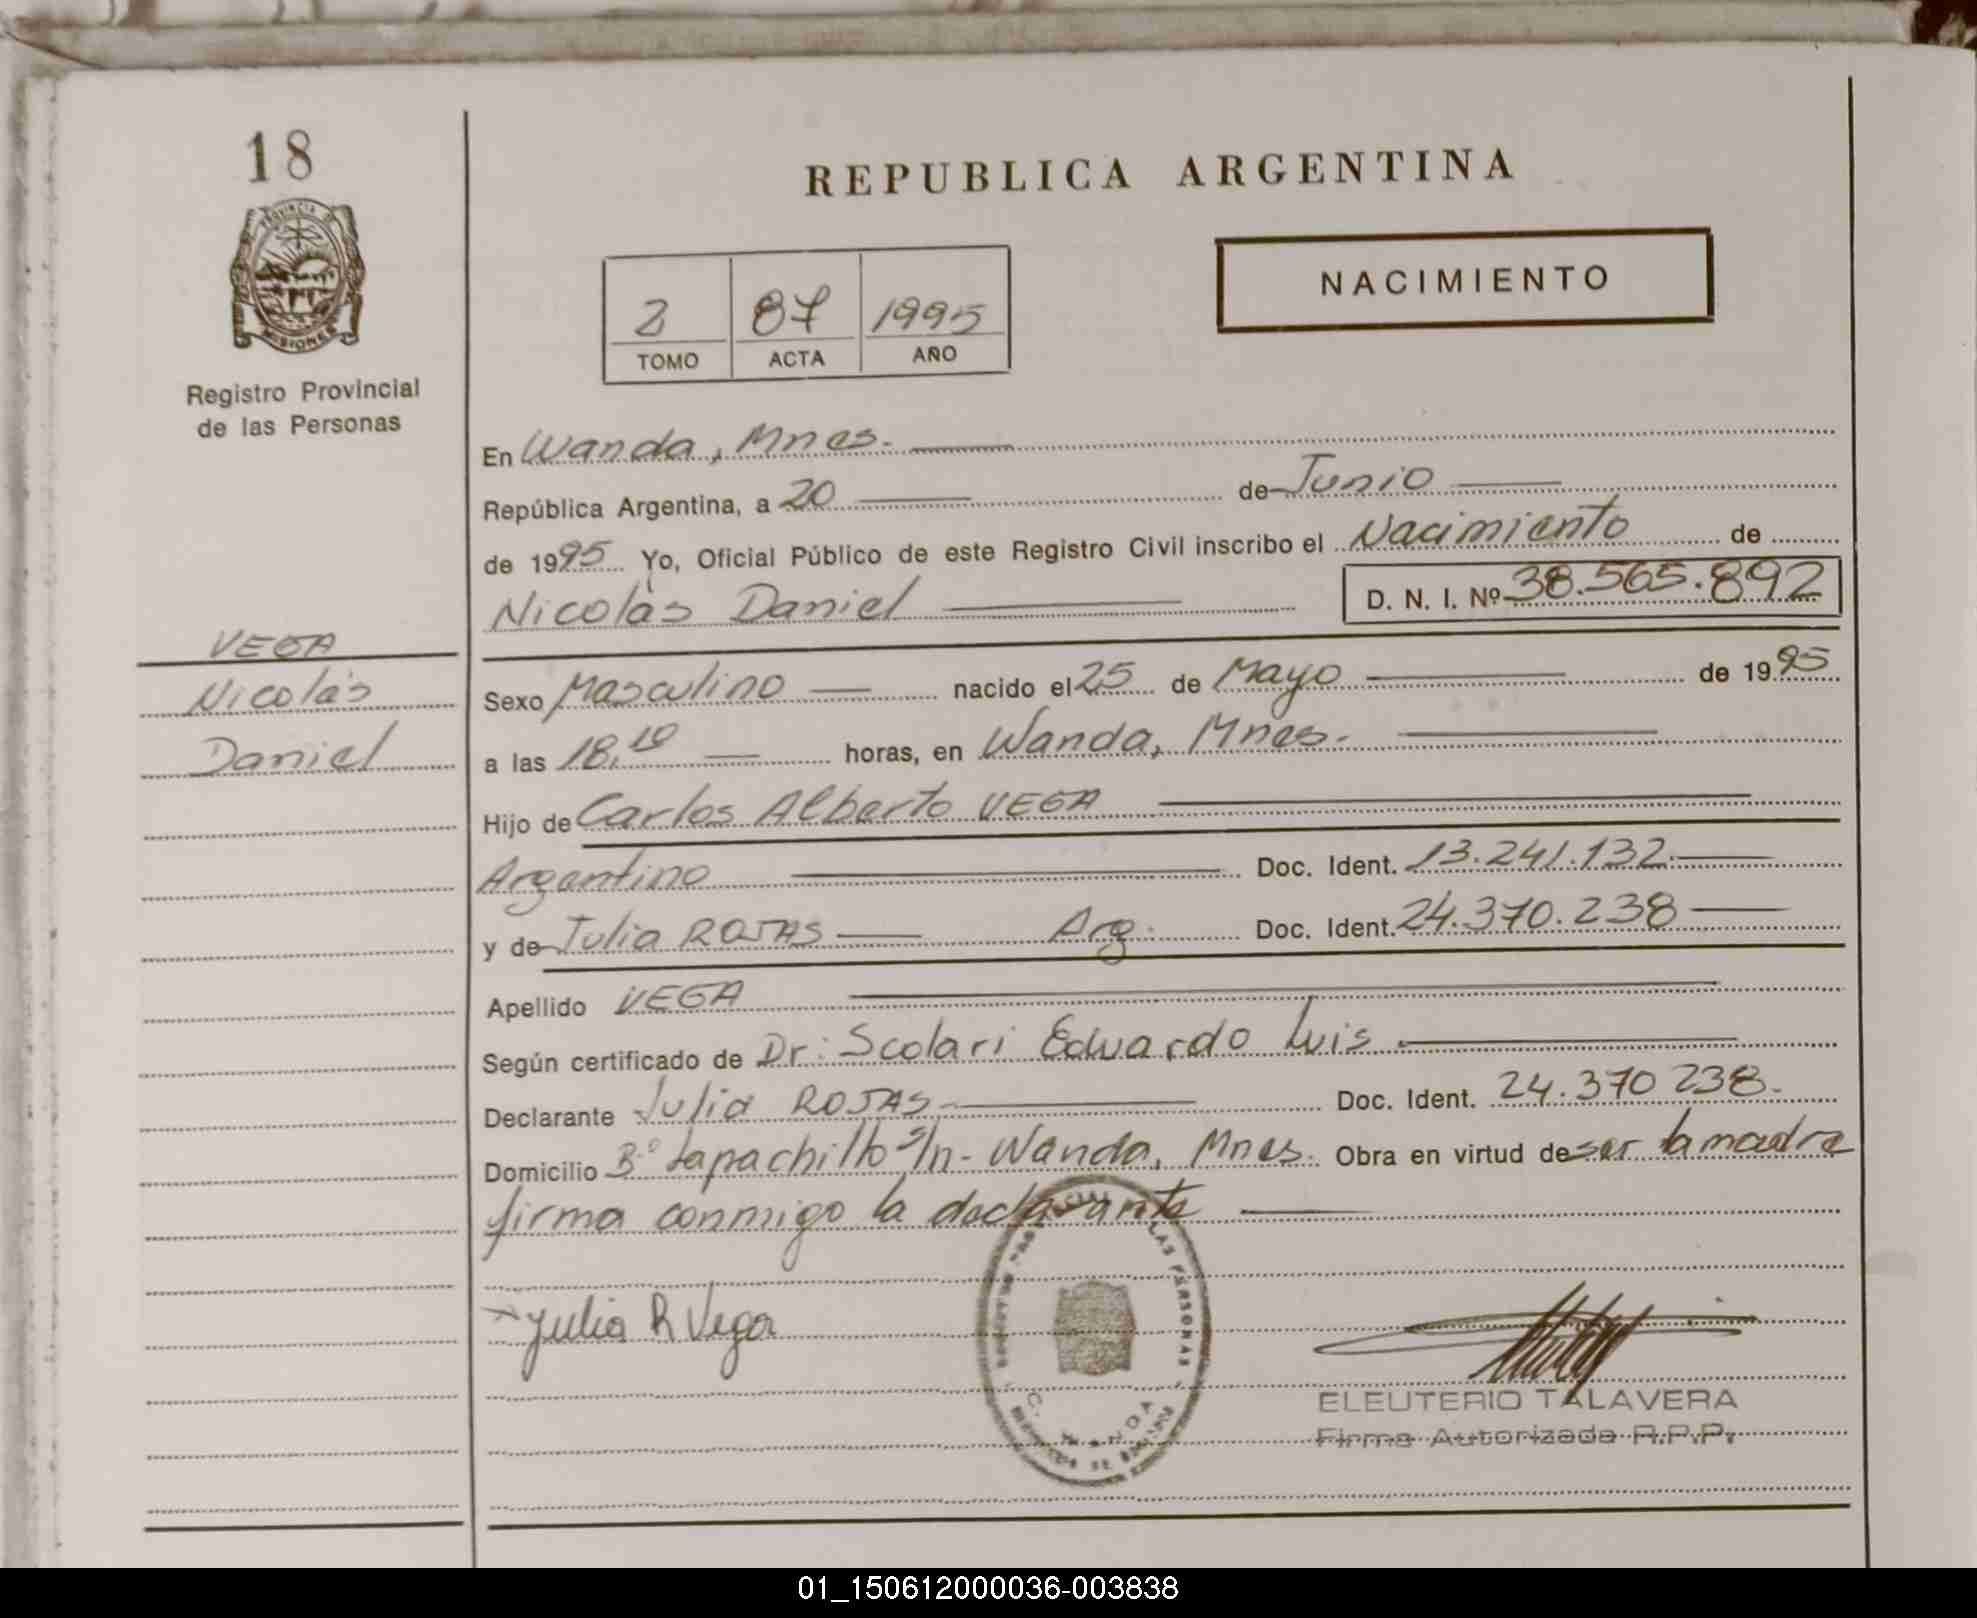 18
PROVINCIA DE
MISIONES
Registro Provincial
de las Personas
REPUBLICA ARGENTINA
NACIMIENTO
2 87 1995
TOMO ACTA AÑO
En Wanda, Mnes.
República Argentina, a 20 de Junio
de 1995 Yo, Oficial Público de este Registro Civil inscribo el Nacimiento de
Nicolás Daniel D. N. I. Nº 38.565.892
VEGA
Nicolás
Daniel
Sexo Masculino nacido el 25 de Mayo de 1995
a las 18,10 horas, en Wanda, Mnes.
Hijo de Carlos Alberto VEGA
Argentino Doc. Ident. 13.241.132
y de Julia ROJAS Arg. Doc. Ident. 24.370.238
Apellido VEGA
Según certificado de Dr. Scolari Eduardo Luis
Declarante Julia ROJAS Doc. Ident. 24.370 238.
Domicilio Bº Lapachito s/n - Wanda, Mnes. Obra en virtud de ser la madre
firma conmigo la declarante
Julia R Vega
LAS PERSONAS
ELEUTERIO TALAVERA
Firma Autorizada R.P.P.
01_150612000036-003838